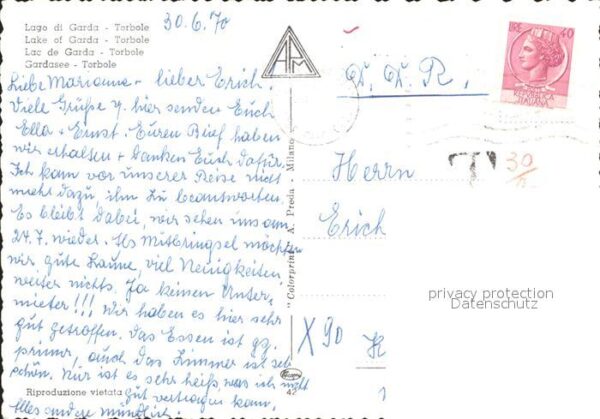 Lago di Garda - Torbole
Lake of Garda - Torbole
Lac de Garda - Torbole
Gardasee - Torbole
30.6.70
Liebe Marianne - lieber Erich.
Viele Grüße v. hier senden Euch
Ella + Ernst. Euren Brief haben
wir erhalten + danken Euch dafür.
Ich kam vor unserer Reise nicht
mehr dazu, ihn zu beantworten.
Es bleibt dabei, wir sehen uns am
24.7. wieder. Als Mitbringsel möchten
wir gute Laune, viel Neuigkeiten
weiter nichts. Ja keinen Unter-
mieter!!! Wir haben es hier sehr
gut getroffen. Das Essen ist
prima, auch das Zimmer ist
schön. Nur ist es sehr heiß was ich nicht
gut vertragen kann.
Alles andere mündlich
Riproduzione vietata
42
"Colorprint" A. Preda - Milano
APM
D. D. R.
LIRE 40
REPUBBLICA
ITALIANA
T
30
Herrn
Erich
X 90
privacy protection
Datenschutz